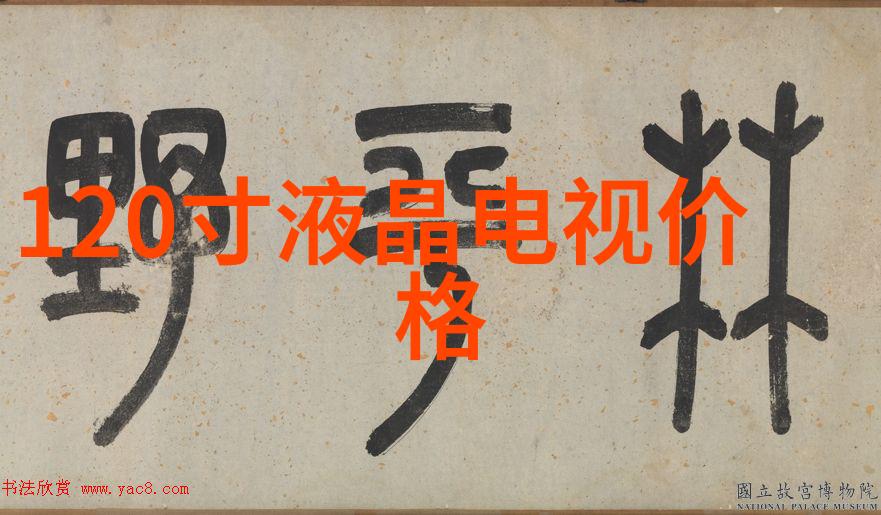 林野
120寸液晶电视价
格
书法欣赏 www.yac8.com
國立故宮博物院
NATIONAL PALACE MUSEUM